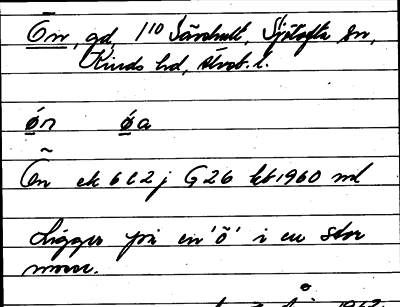 Ön, gd, 1¹⁰ Särshult, Sjötofta sn,
Kinds hd, Älvsb. l.
ø̱n ø̱a
Ön ek 6 C 2 j G 26 kb 1960 nd
Ligger på en 'ö' i en stor
mosse.